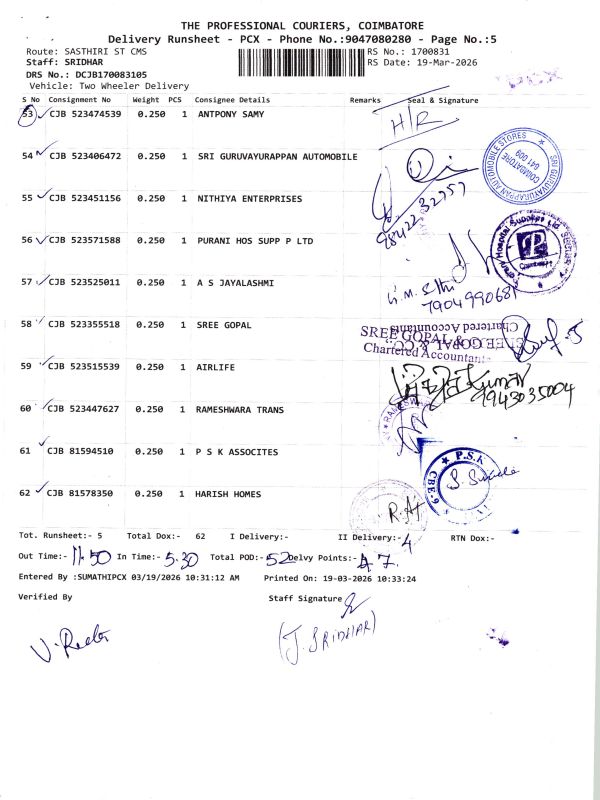 THE PROFESSIONAL COURIERS, COIMBATORE
Delivery Runsheet - PCX - Phone No.:9047080280 - Page No.:5
Route: SASTHIRI ST CMS RS No.: 1700831
Staff: SRIDHAR RS Date: 19-Mar-2026
DRS No.: DCJB170083105
Vehicle: Two Wheeler Delivery
PCX
S No Consignment No Weight PCS Consignee Details Remarks Seal & Signature
53 CJB 523474539 0.250 1 ANTPONY SAMY H/R
54 CJB 523406472 0.250 1 SRI GURUVAYURAPPAN AUTOMOBILE
SRI GURUVAYURAPPAN AUTOMOBILE STORES COIMBATORE 641 009
9842232757
55 CJB 523451156 0.250 1 NITHIYA ENTERPRISES
56 CJB 523571588 0.250 1 PURANI HOS SUPP P LTD
57 CJB 523525011 0.250 1 A S JAYALASHMI
7904990681
58 CJB 523355518 0.250 1 SREE GOPAL
SREE GOPAL & CO.,
Chartered Accountants
59 CJB 523515539 0.250 1 AIRLIFE
9943035004
60 CJB 523447627 0.250 1 RAMESHWARA TRANS
61 CJB 81594510 0.250 1 P S K ASSOCITES
P.S.K CBE-6
62 CJB 81578350 0.250 1 HARISH HOMES
Tot. Runsheet:- 5 Total Dox:- 62 I Delivery:- II Delivery:- 4 RTN Dox:-
Out Time:- 11.50 In Time:- 5.30 Total POD:- 52 Delvy Points:- 47.
Entered By :SUMATHIPCX 03/19/2026 10:31:12 AM Printed On: 19-03-2026 10:33:24
Verified By Staff Signature
(J. SRIDHAR)